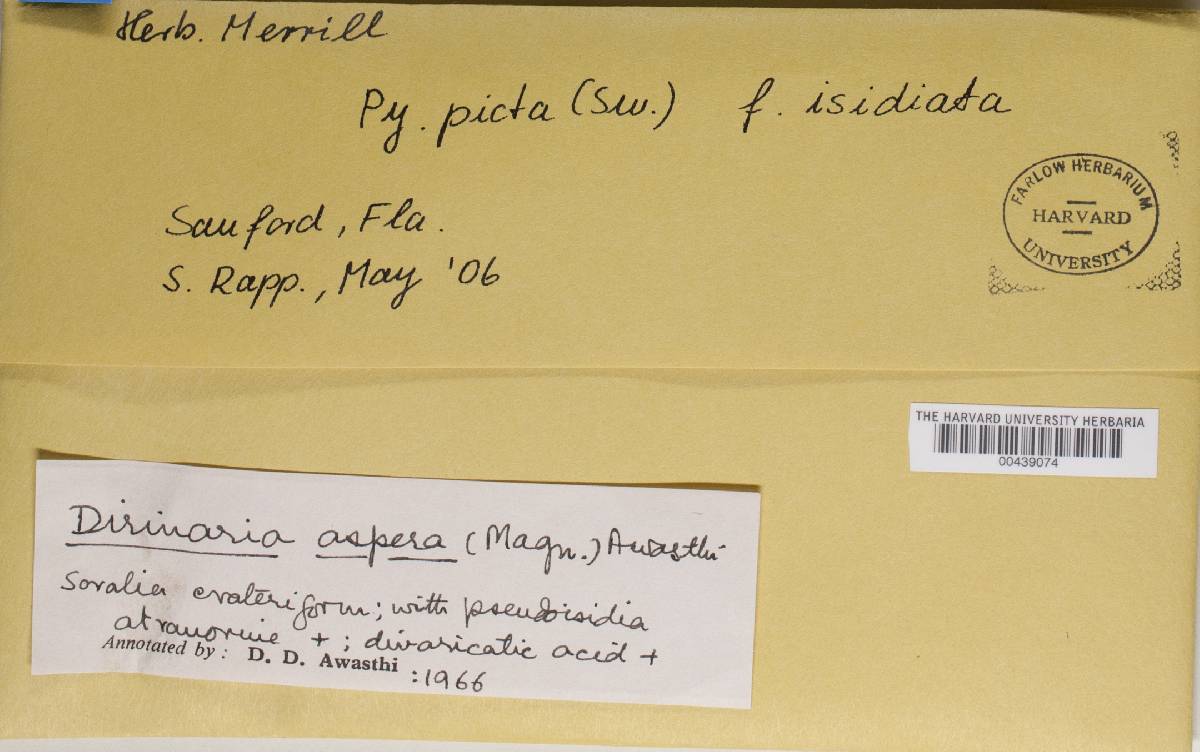 Herb. Merrill
Py. picta (Sw.) f. isidiata
FARLOW HERBARIUM
HARVARD
UNIVERSITY
Sanford, Fla.
S. Rapp., May '06
THE HARVARD UNIVERSITY HERBARIA
00439074
Dirinaria aspera (Magn.) Awasthi
Soralia crateriform; with pseudoisidia
atranorine + ; divaricatic acid +
Annotated by: D. D. Awasthi
:1966